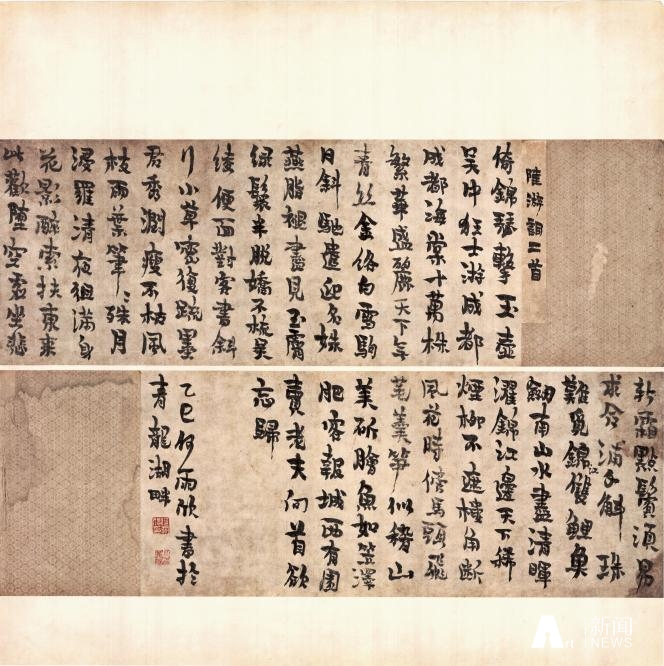 陸游詞二首
倚錦瑟擊玉壺
吳中狂士游成都
成都海棠十萬株
繁華盛麗天下無
青絲金絡白雪駒
日斜馳遣迎名姝
燕脂褪盡見玉膚
綠鬟半脫嬌不梳吳
綾便面對客書斜
行小草密復疏墨
君秀潤瘦不枯風
枝雨葉筆筆殊月
浸羅清夜徂滿身
花影醉索扶東來
此歡墮空虛坐悲
新霜點鬢須易
求合浦千斛珠
難覓錦江雙鯉魚
劍南山水盡清暉
濯錦江邊天下稀
煙柳不遮樓角斷
風花時傍馬頭飛
芼羹筍似稽山
美斫膾魚如笠澤
肥客報城西有園
賣老夫何首欲
忘歸
乙巳何雨欣書於
青龍湖畔
Art 新闻 NEWS